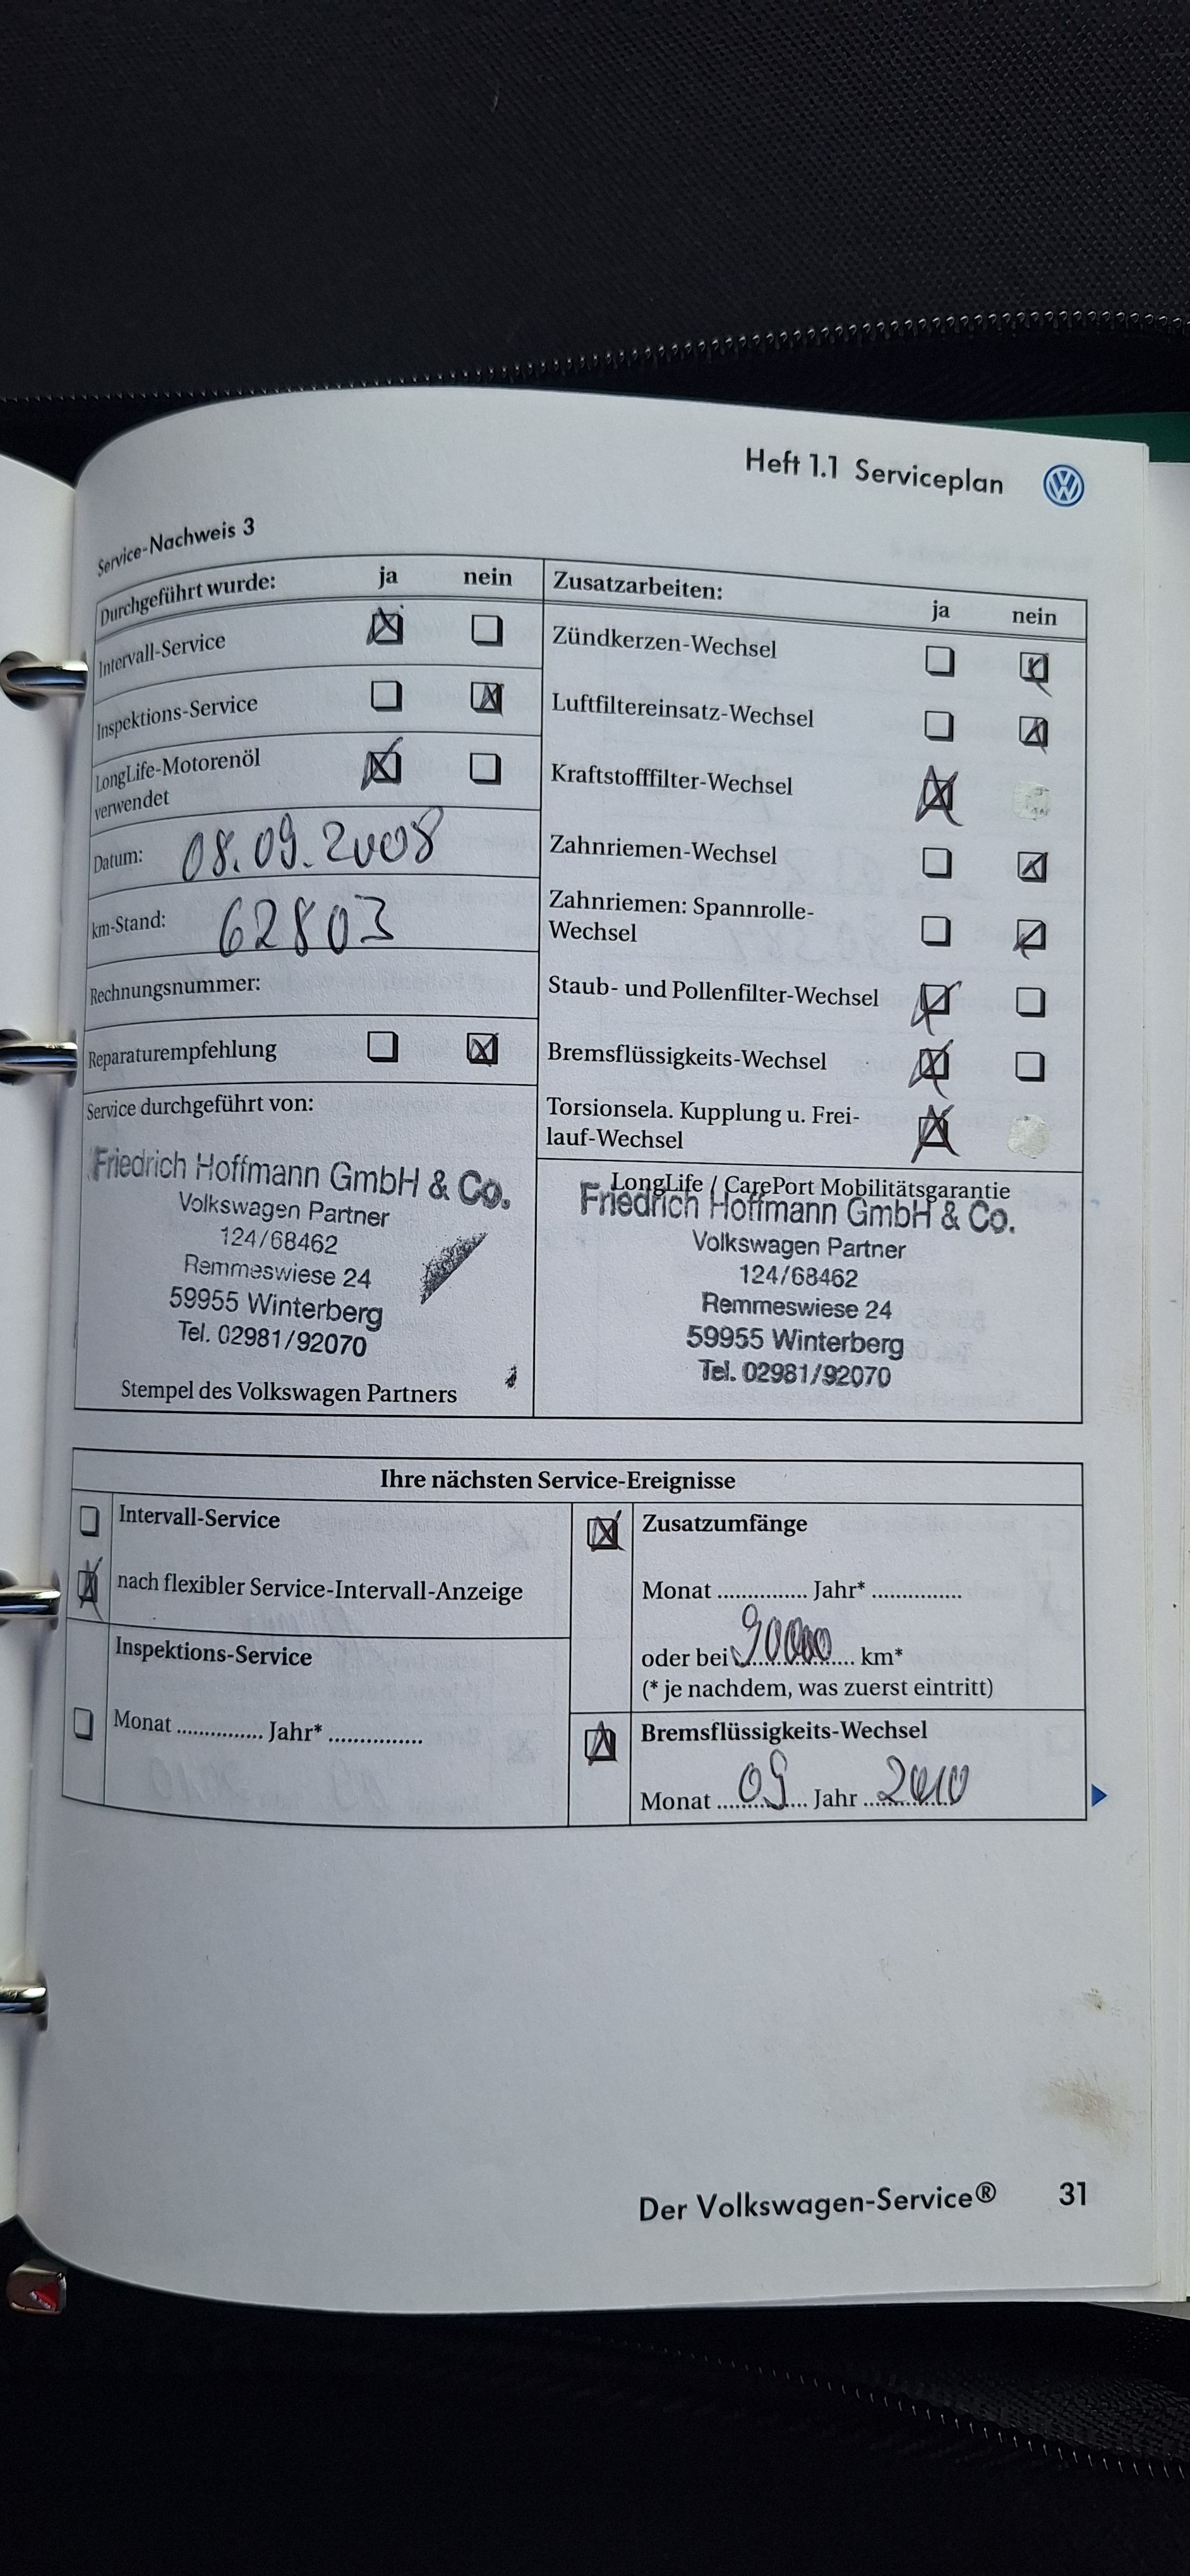 Heft 1.1 Serviceplan
Service-Nachweis 3
Durchgeführt wurde: ja nein
Intervall-Service
Inspektions-Service
LongLife-Motorenöl
verwendet
Datum: 08.09.2008
km-Stand: 62803
Rechnungsnummer:
Reparaturempfehlung
Service durchgeführt von:
Friedrich Hoffmann GmbH & Co.
Volkswagen Partner
124/68462
Remmeswiese 24
59955 Winterberg
Tel. 02981/92070
Stempel des Volkswagen Partners
Zusatzarbeiten:
ja nein
Zündkerzen-Wechsel
Luftfiltereinsatz-Wechsel
Kraftstofffilter-Wechsel
Zahnriemen-Wechsel
Zahnriemen: Spannrolle-
Wechsel
Staub- und Pollenfilter-Wechsel
Bremsflüssigkeits-Wechsel
Torsionsela. Kupplung u. Frei-
lauf-Wechsel
LongLife / CarePort Mobilitätsgarantie
Friedrich Hoffmann GmbH & Co.
Volkswagen Partner
124/68462
Remmeswiese 24
59955 Winterberg
Tel. 02981/92070
Ihre nächsten Service-Ereignisse
Intervall-Service
nach flexibler Service-Intervall-Anzeige
Inspektions-Service
Monat .............. Jahr* ...............
Zusatzumfänge
Monat .............. Jahr* ..............
oder bei 90000 km*
(* je nachdem, was zuerst eintritt)
Bremsflüssigkeits-Wechsel
Monat 09 Jahr 2010
Der Volkswagen-Service® 31